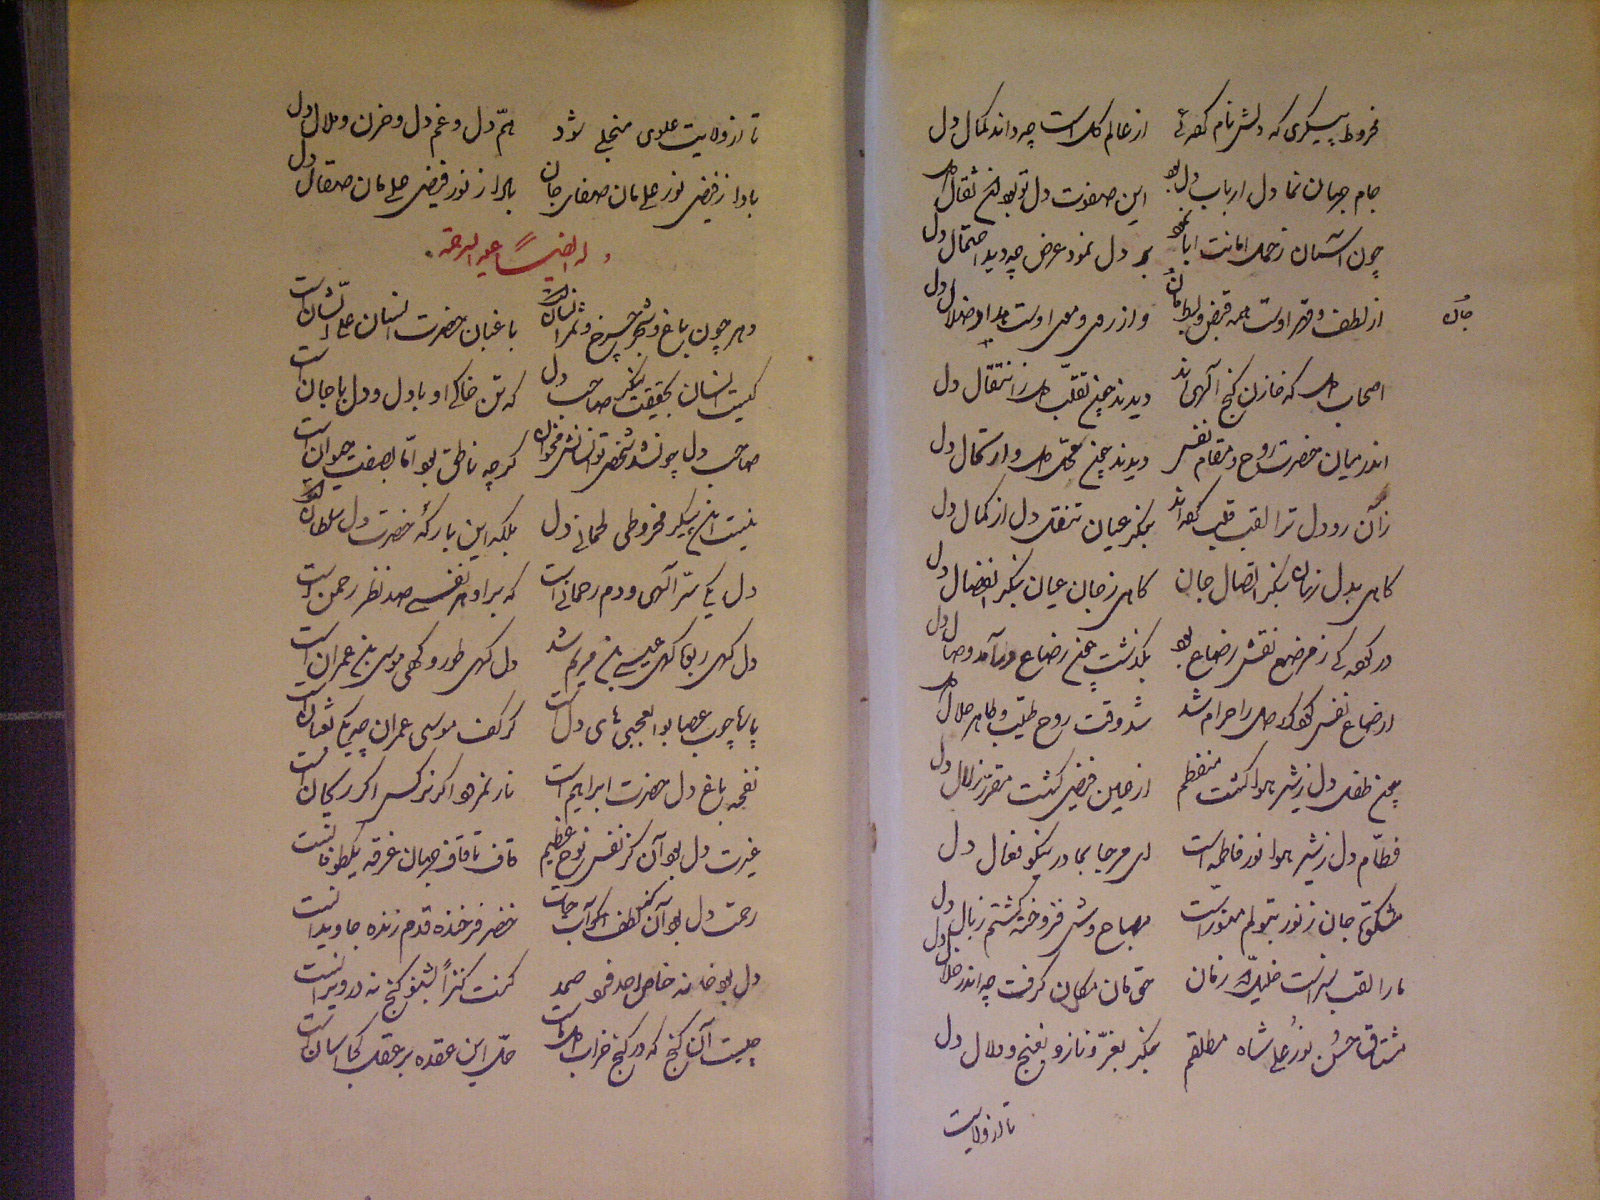 مخروط پیکری که دلش نام کرده‌ئی از عالم کل است چه داند کمال دل
جام جهان نما دل ارباب دل بود این صفوت دل تو بود
چون آسمان ز حمل امانت ابا نمود بر دل نمود عرض چه دید احتمال دل
از لطف و قهر اوست همه قبض و بسط
جان
اصحاب دل که خازن گنج آلهی‌اند دیدند چون تقلب دل ز انتقال دل
اندر میان حضرت روح و مقام نفس دیدند چون
زآن رو دل ترا لقب قلب کرده‌اند بنگر عیان تنقل دل از کمال دل
کاهی بدل نهان بنگر اتصال جان کاهی ز جان عیان بنگر انفصال دل
نقش رضاع بود بگذشت چون رضاع درآمد وصال دل
ارضاع نفس کودک دل را حرام شد شد وقت روح طیب و طاهر حلال دل
چون طفل دل ز شیر هوا گشت منفطم از عین فیض گشت مقرر زلال دل
فطام دل ز شیر هوا نور فاطمه است ای مرحبا بمادر نیکو فعال دل
مشکوة جان ز نور بتولم منور است مصباح وش فروخته گشتم زبال دل
ما را لقب خلیل زمان حق مان مکان گرفت چه اندر خلال دل
مشتاق حسن نور علی شاه مطلقم بنگر بعز و ناز و بغنج و دلال دل
تا از ولایت
تا از ولایت علوی منجلی شود هم دل و غم دل و حزن و ملال دل
بادا ز فیض نور علی مان صفای جان بادا ز نور فیض علی مان صقال دل
و له ایضاً علیه الرحمة
دهر چون باغ و شجر چرخ و ثمر انسان است باغبان حضرت انسان علی الشان است
کیست انسان بحقیقت بنگر صاحب دل که تن خاکی او با دل و دل با جان است
صاحب دل چو نشد شخص تو انسانش مخوان گرچه ناطق بود اما بصفت حیوان است
نیست این پیکر مخروطی لحمانی دل بلکه این بارگه حضرت دل سلطان است
دل یکی سر آلهی و دم رحمانی است که بر او هر نفسی صد نظر رحمن است
دل گهی روح گهی عیسی بن مریم شد دل گهی طور و گهی موسی بن عمران است
پاره چوب عصا بوالعجبی های دل است در کف موسی عمران چو یکی ثعبان است
نفحه باغ دل حضرت ابراهیم است نار نمرود اگر نرگس اگر ریحان است
غیرت دل بود آن کز نفس نوح عظیم قاف تا قاف جهان غرقه یک طوفان است
رحمت دل بود آن کز لطف آب حیات خضر فرخنده قدم زنده جاویدان است
دل بود خانه خاص احد فرد صمد کنت کنزاً بشنو گنج نه در ویران است
چیست آن گنج که در کنج خراب دل ماست حل این عقده بر عقل کجا آسان است